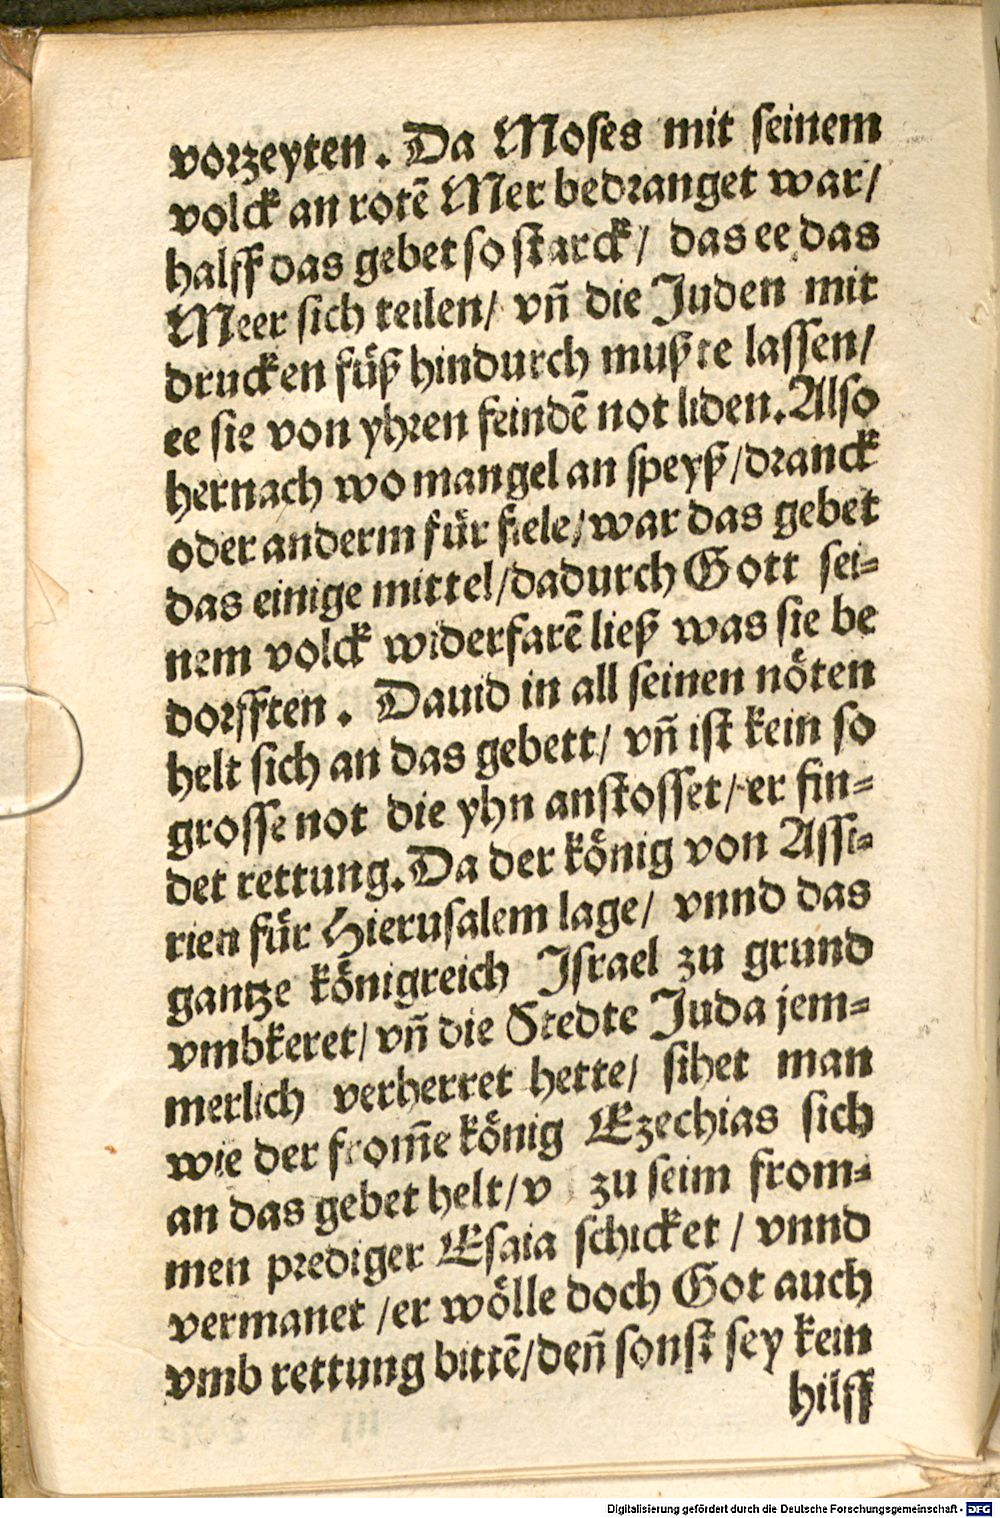 vorzeyten. Da Moses mit seinem
volck an rotē Mer bedranget war/
halff das gebet so starck/ das ee das
Meer sich teilen/ vñ die Juden mit
drucken füß hindurch mußte lassen/
ee sie von yhren feindē not liden. Also
hernach wo mangel an speyß/dranck
oder anderm für fiele/war das gebet
das einige mittel/dadurch Gott sei-
nem volck widerfarē ließ was sie be
dorfften. Dauid in all seinen nöten
helt sich an das gebett/ vñ ist kein so
grosse not die yhn anstosset/ er fin-
det rettung. Da der könig von Assi-
rien für Hierusalem lage/ vnnd das
gantze königreich Israel zu grund
vmbkeret/ vñ die Stedte Juda jem-
merlich verherret hette/ sihet man
wie der from̄e könig Ezechias sich
an das gebet helt/v zu seim from-
men prediger Esaia schicket / vnnd
vermanet /er wölle doch Got auch
vmb rettung bittē/deñ sonst sey kein
hilff
Digitalisierung gefördert durch die Deutsche Forschungsgemeinschaft - DFG